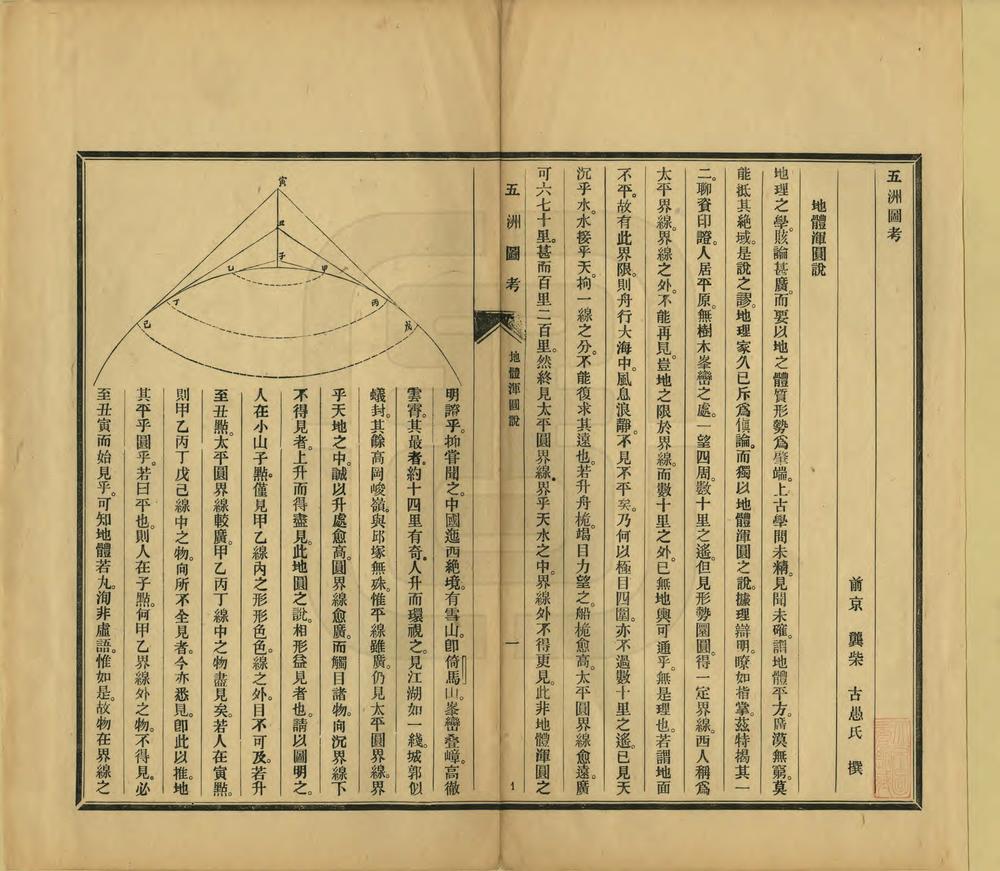 五洲圖考
前京 龔柴 古愚氏 撰
地體渾圓說
地理之學。賅論甚廣。而要以地之體質形勢爲肇端。上古學問未精。見聞未確。謂地體平方。廣漠無窮。莫
能抵其絶域。是說之謬。地理家久已斥爲傎論。而獨以地體渾圓之說。據理辯明。瞭如指掌。茲特揭其一
二。聊資印證。人居平原。無樹木峯巒之處。一望四周。數十里之遙。但見形勢團圓。得一定界線。西人稱爲
太平界線。界線之外。不能再見。豈地之限於界線。而數十里之外。已無地輿可通乎。無是理也。若謂地面
不平。故有此界限。則舟行大海中。風息浪靜。不見不平矣。乃何以極目四圍。亦不過數十里之遙。已見天
沉乎水。水接乎天。拘一線之分。不能復求其遠也。若升舟桅。竭目力望之。船桅愈高。太平圓界線愈遠。廣
可六七十里。甚而百里二百里。然終見太平圓界線。界乎天水之中。界線外不得更見。此非地體渾圓之
五洲圖考
地體渾圓說
一
1
寅
丑
子
乙
甲
丁
丙
己
戊
明證乎。抑甞聞之。中國迤西絶境。有雪山。卽倚馬山。峯巒叠嶂。高徹
雲霄。其最者。約十四里有奇。人升而環視之。見江湖如一綫。城郭似
蟻封。其餘高岡峻嶺。與邱塚無殊。惟平線雖廣。仍見太平圓界線。界
乎天地之中。誠以升處愈高。圓界線愈廣。而觸目諸物。向沉界線下
不得見者。上升而得盡見。此地圓之說。相形益見者也。請以圖明之。
人在小山子點。僅見甲乙線內之形形色色。線之外。目不可及。若升
至丑點。太平圓界線較廣。甲乙丙丁線中之物盡見矣。若人在寅點。
則甲乙丙丁戊己線中之物。向所不全見者。今亦悉見。卽此以推。地
其平乎圓乎。若曰平也。則人在子點。何甲乙界線外之物。不得見。必
至丑寅而始見乎。可知地體若丸。洵非虛語。惟如是。故物在界線之